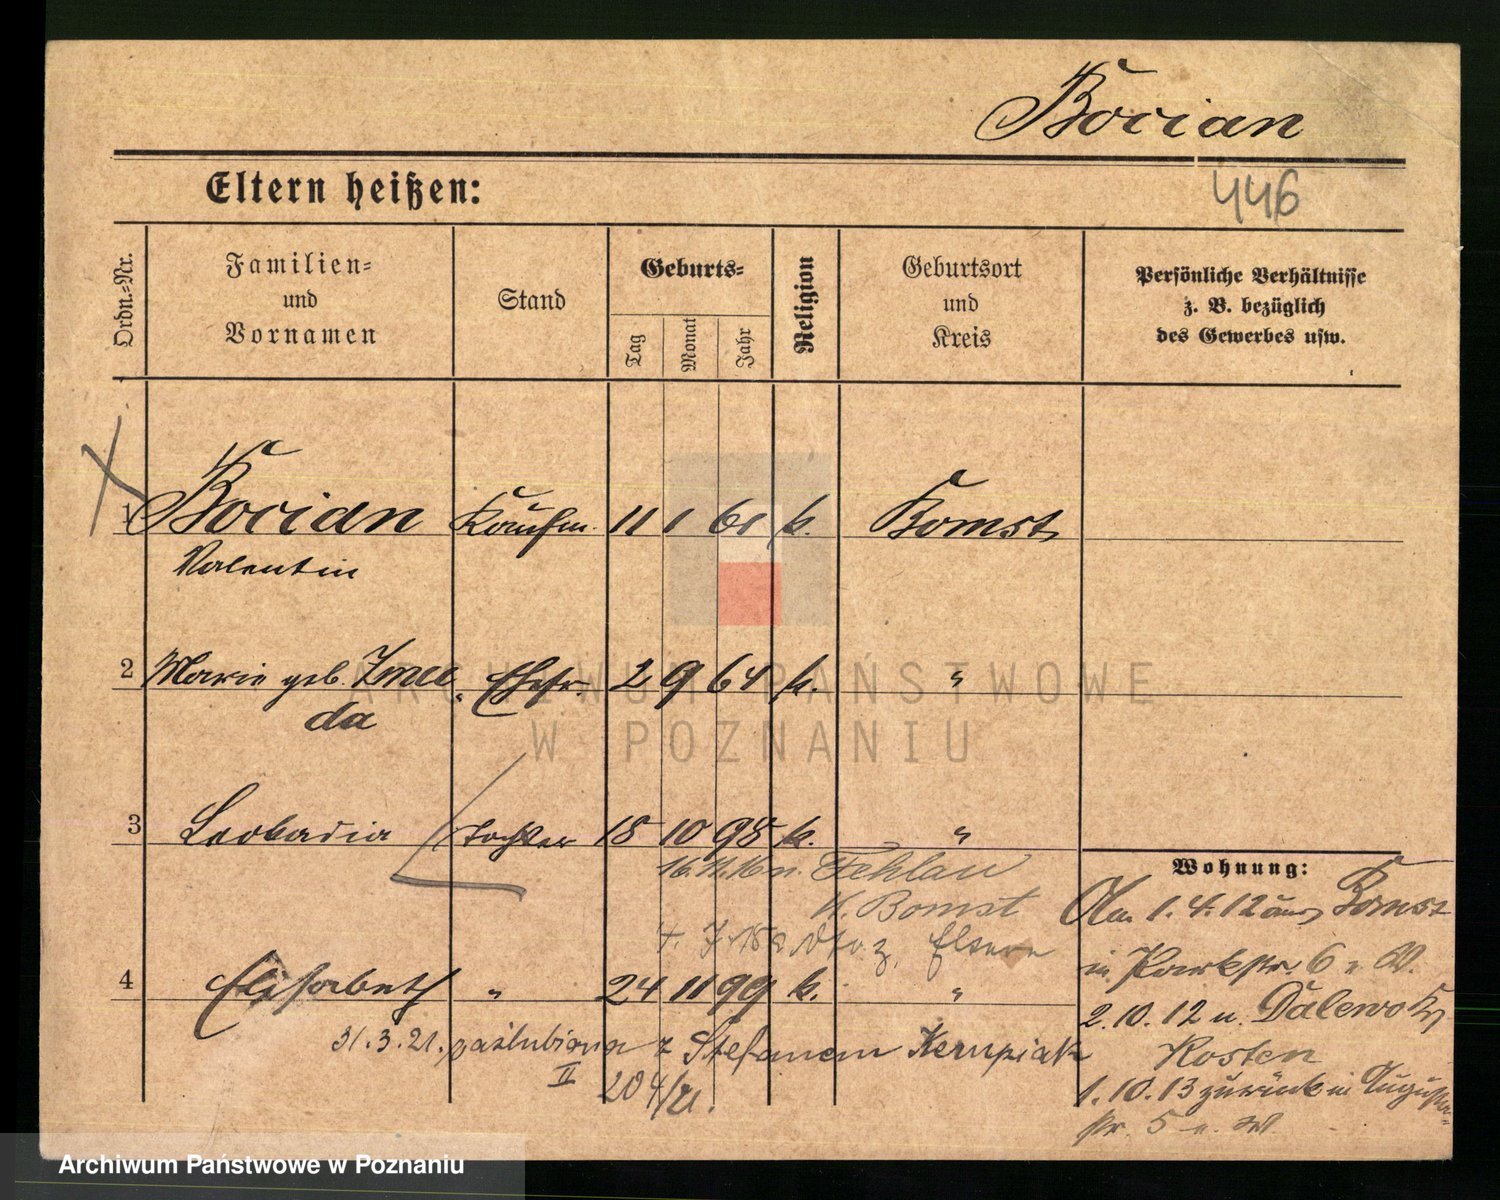 Bocian
446
Eltern heißen:
Ordn.=Nr.
Familien=
und
Vornamen
Stand
Geburts=
Tag
Monat
Jahr
Religion
Geburtsort
und
Kreis
Persönliche Verhältnisse
z. B. bezüglich
des Gewerbes usw.
1 Bocian Kaufm. 11 1 61 k. Bomst
Valentin
2 Marie geb. Ehefr. 2 9 64 k. "
da
3 Leokadia Tochter 18 10 98 k. "
16. 11. 16 n. Fehlau
K. Bomst
Eltern
4 Elisabeth " 24 11 99 k. "
31.3.21. zaślubiona z Stefanem
II 204/21.
Wohnung:
Am 1.4.12 aus Bomst
in Parkstr. 6 v. W.
2.10.12 n. Dalewo Kr.
Kosten
1.10.13 zurück in Augusta=
str. 5 v. W.
ARCHIWUM PAŃSTWOWE
W POZNANIU
Archiwum Państwowe w Poznaniu